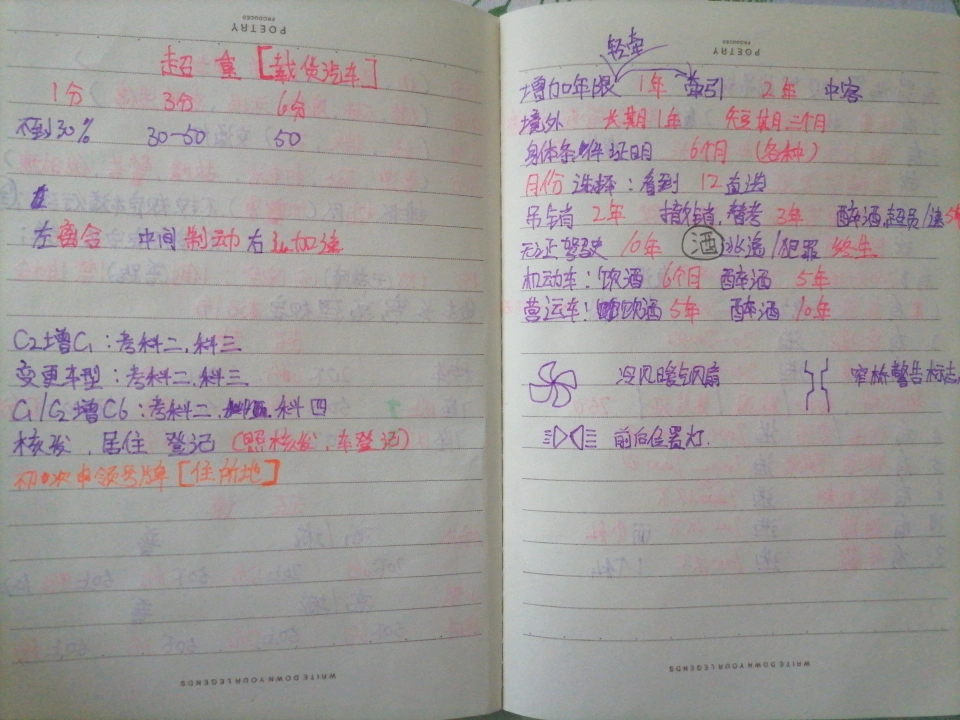 POETRY
PRODUCED
超重[载货汽车]
1分 3分 6分
不到30% 30-50 50
左离合 中间制动 右加速
C2增C1:考科二、科三
变更车型:考科二、科三
C1/C2增C6:考科二、科四
核发、居住 登记(照核发、车登记)
初次申领号牌[住所地]
WRITE DOWN YOUR LEGENDS
POETRY
PRODUCED
轻牵
增加年限 1年 牵引 2年 中客
境外 长期1年 短期三个月
身体条件证明 6个月 (各种)
月份选择:看到 12直选
吊销 2年 撤销、替考 3年 醉酒、超员/速5年
无证驾驶 10年 酒 逃逸/犯罪 终生
机动车:饮酒 6个月 醉酒 5年
营运车:饮酒 5年 醉酒 10年
冷风暖气风扇 窄桥警告标志
前后位置灯.
WRITE DOWN YOUR LEGENDS